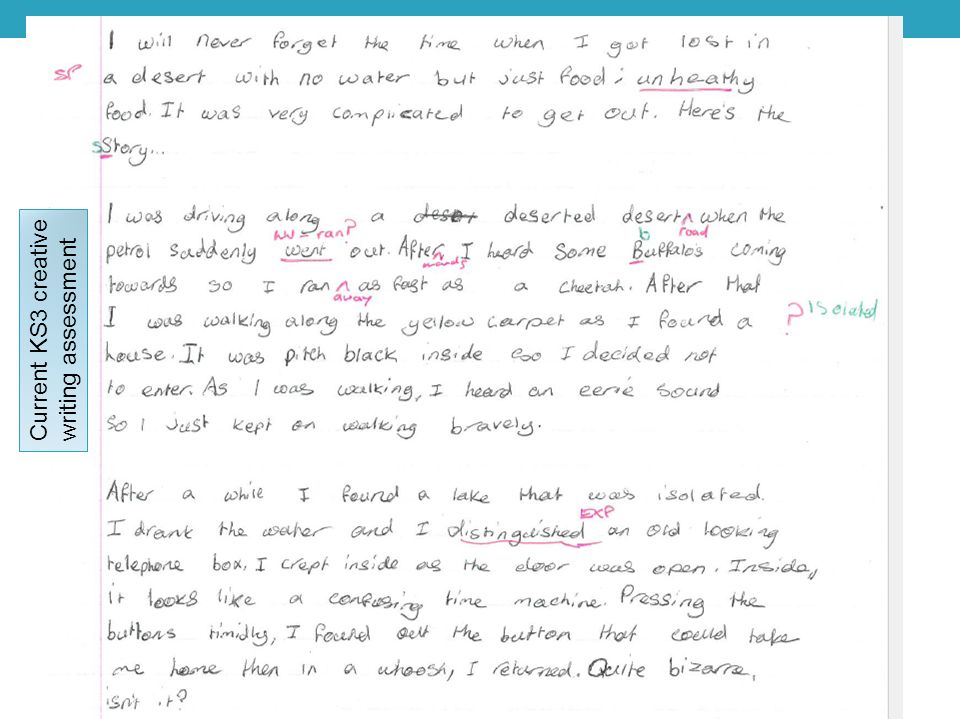 Current KS3 creative
writing assessment
I will never forget the time when I got lost in
sp a desert with no water but just food; unheathy
food. It was very compiicated to get out. Here's the
s Story...
I was driving along a desert deserted desert ^ when the
ww = ran? b road
petrol suddenly went out. After ^ I heard some Buffalo's coming
wards
towards so I ran ^ as fast as a cheetah. After that
away
I was walking along the yellow carpet as I found a ? Isolated
house. It was pitch black inside so I decided not
to enter. As I was walking, I heard an eerie sound
so I just kept on walking bravely.
After a while I found a lake that was isolated.
EXP
I drank the water and I distinguished an old looking
telephone box. I crept inside as the door was open. Inside,
it looks like a confusing time machine. Pressing the
buttons timidly, I found out the button that could take
me home then in a whoosh, I returned. Quite bizarre,
isn't it?